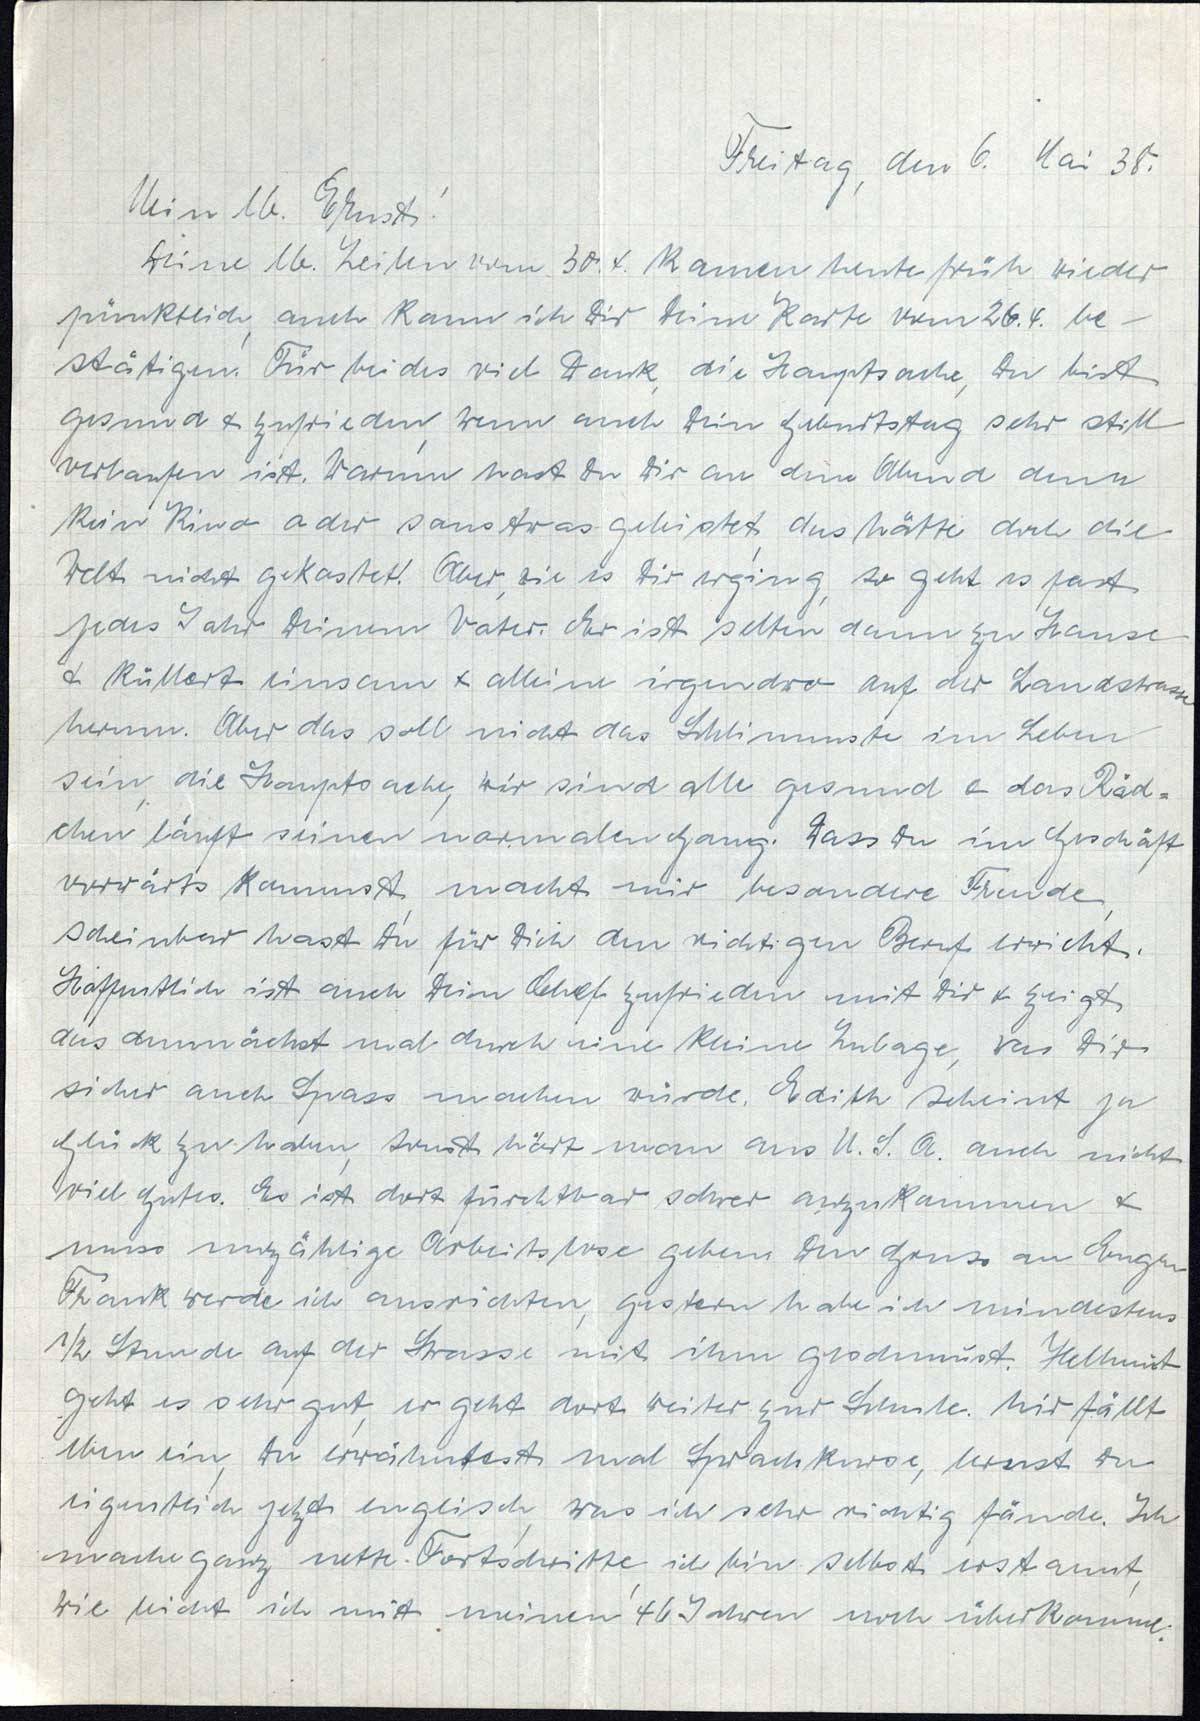 Freitag, den 6. Mai 38.
Mein lb. Ernst!
Deine lb. Zeilen vom 30.4. kamen heute früh wieder
pünktlich, auch kann ich Dir Deine Karte vom 26.4. be-
stätigen. Für beides viel Dank, die Hauptsache, Du bist
gesund & zufrieden, wenn auch Dein Geburtstag sehr still
verlaufen ist. Warum hast Du Dir an dem Abend denn
kein Kino oder sonst was geleistet, das hätte doch die
Welt nicht gekostet! Aber, wie es Dir erging, so geht es fast
jedes Jahr Deinem Vater. Er ist selten dann zu Hause
& kullert einsam & alleine irgendwo auf der Landstrasse
herum. Aber das soll nicht das Schlimmste im Leben
sein, die Hauptsache, wir sind alle gesund & das Räd=
chen läuft seinen normalen Gang. Dass Du im Geschäft
vorwärts kommst, macht mir besondere Freude,
scheinbar hast Du für Dich den richtigen Beruf erwicht.
Hoffentlich ist auch Dein Chef zufrieden mit Dir & zeigt
das demnächst mal durch eine kleine Zulage, was Dir
sicher auch Spass machen würde. Edith scheint ja
Glück zu haben, sonst hört man aus U.S.A. auch nicht
viel Gutes. Es ist dort furchtbar schwer anzukommen &
muss unzählige Arbeitslose geben. Den Gruss an Eugen
Frank werde ich ausrichten, gestern habe ich mindestens
1/2 Stunde auf der Strasse mit ihm geschmust. Hellmut
geht es sehr gut, er geht dort weiter zur Schule. Mir fällt
eben ein, Du erwähntest mal Sprachkurse, lernst Du
eigentlich jetzt englisch, was ich sehr richtig fände. Ich
mache ganz nette Fortschritte, ich bin selbst erstaunt,
wie leicht ich mit meinen 46 Jahren noch überkomme.